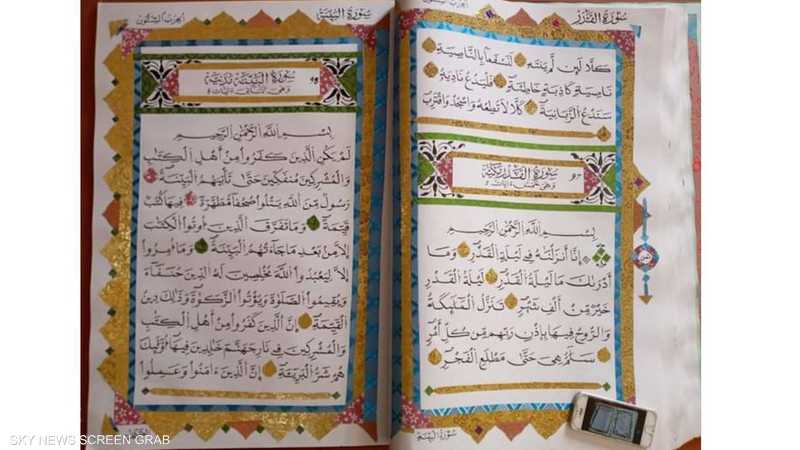 سورة القدر
كلا لئن لم ينته لنسفعا بالناصية
ناصية كاذبة خاطئة فليدع ناديه
سندع الزبانية كلا لا تطعه واسجد واقترب
سورة القدر مكية
بسم الله الرحمن الرحيم
إنا أنزلنه في ليلة القدر وما
أدرىك ما ليلة القدر ليلة القدر
خير من ألف شهر تنزل الملىكة
والروح فيها بإذن ربهم من كل أمر
سلم هي حتى مطلع الفجر
سورة البينة
سورة البينة
الحزب الستون
سورة البينة مدنية
بسم الله الرحمن الرحيم
لم يكن الذين كفروا من أهل الكتب
والمشركين منفكين حتى تأتيهم البينة
رسول من الله يتلوا صحفا مطهرة فيها كتب
قيمة وما تفرق الذين أوتوا الكتب
إلا من بعد ما جاءتهم البينة وما أمروا
إلا ليعبدوا الله مخلصين له الدين حنفاء
ويقيموا الصلوة ويؤتوا الزكوة وذلك دين
القيمة إن الذين كفروا من أهل الكتب
والمشركين في نار جهنم خلدين فيها أولىك
هم شر البرية إن الذين ءامنوا وعملوا
SKY NEWS SCREEN GRAB